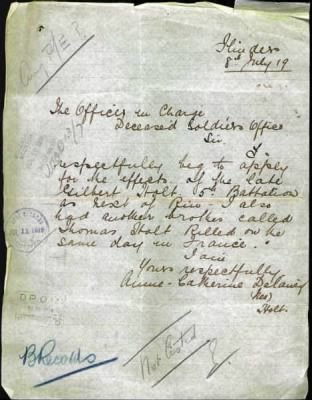 Flinders
8th July 19
The Officer in Charge
Deceased Soldiers Office
Sir
I
respectfully beg to apply
for the effects of the late
Gilbert Holt 5th Battalion
as next of Kin I also
had another brother called
Thomas Holt Killed on the
same day in France.
I am
Yours respectfully
Annie Catherine Delaney
Nee
Holt.
B Records
Not Ested